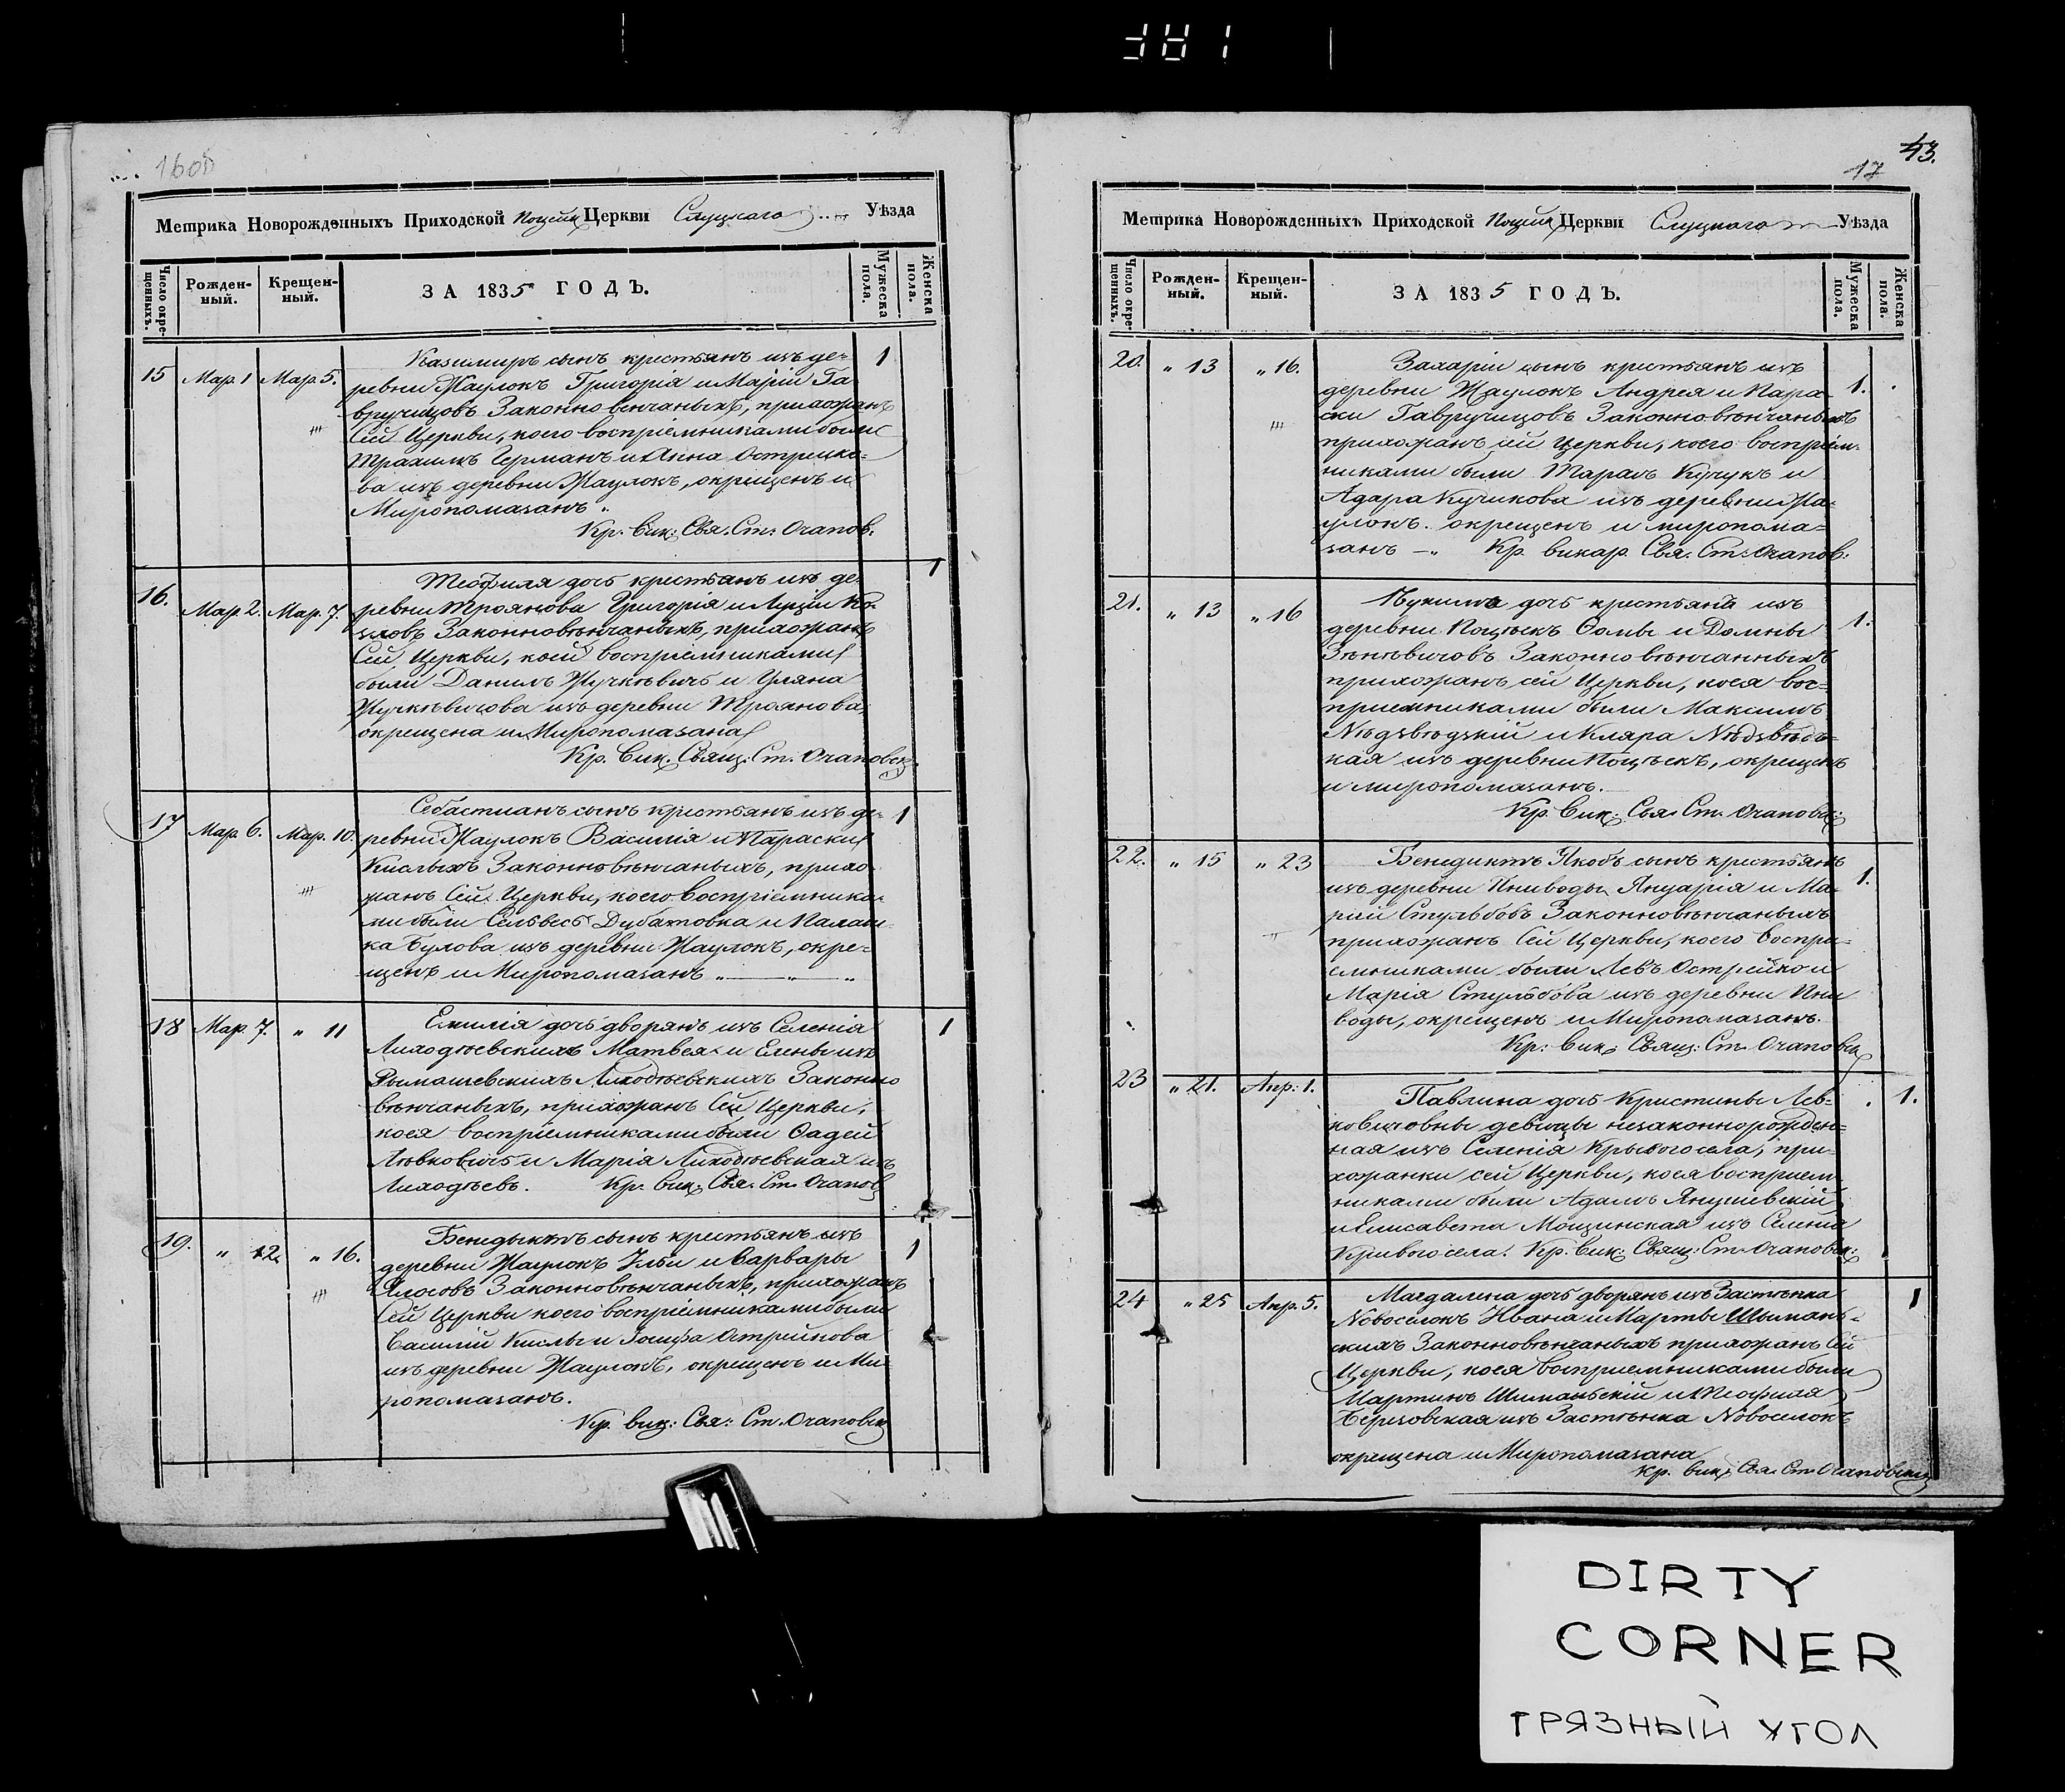 381
1600
Метрика Новорожденныхъ Приходской Поцейк Церкви Слуцкаго Уѣзда
Число окрещенныхъ.
Рожденный.
Крещенный.
ЗА 1835 ГОДЪ.
Мужеска пола.
Женска пола.
15 Мар. 1 Мар. 5. 1
Казимиръ сынъ крестьянъ изъ де-
ревни Жаулокъ Григорія и Маріи Га
вручицовъ Законно венчаныхъ, прихожанъ
Сей Церкви, коего воспріемниками были
Трахимъ Германъ и Анна Острейко-
ва изъ деревни Жаулокъ, окрещенъ и
Миропомазанъ „
Кр. Вик: Свя. Ст. Очапов.
16. Мар. 2. Мар. 7. 1
Теофиля дочь крестьянъ изъ де-
ревни Троянова Григорія и Луціи Ко-
зловъ Законновѣнчаныхъ, прихожанъ
Сей Церкви, коей воспріемниками
были Данилъ Жучкѣвичь и Уляна
Жучкѣвичова изъ деревни Троянова,
окрещена и Миропомазана
Кр. Вик. Свящ: Ст. Очаповск
17 Мар. 6. Мар. 10. 1
Себастианъ сынъ крестьянъ изъ де-
ревни Жаулокъ Василія и Параски
Кислыхъ Законновѣнчаныхъ, прихо
жанъ Сей Церкви, коего воспріемника-
ми были Сельвесъ Дубатовка и Палаш-
ка Булова изъ деревни Жаулокъ, окре-
щенъ и Миропомазанъ „ — „ — „
18 Мар. 7. „ 11 1
Емилія дочь дворянъ изъ Селенія
Лиходѣевскихъ Матвея и Елены изъ
Рымашевскихъ Лиходѣевскихъ Законно
вѣнчаныхъ, прихожанъ Сей Церкви,
коея воспріемниками были Фадей
Лѣвковичь и Марія Лиходѣевская изъ
Лиходѣевъ. Кр. вик: Свя. Ст. Очапов
19. „ 12 „ 16. 1
Бенедыктъ сынъ крестьянъ изъ
деревни Жаулокъ Ильи и Варвары
Сей Церкви коего воспріемниками были
Василій Кислы и Іозефа Острейкова
изъ деревни Жаулокъ, окрещенъ и Ми-
ропомазанъ.
Кр. вик: Свя: Ст. Очаповск
43.
17
Метрика Новорожденныхъ Приходской Поцейк Церкви Слуцкаго Уѣзда
Число окрещенныхъ.
Рожденный.
Крещенный.
ЗА 1835 ГОДЪ.
Мужеска пола.
Женска пола.
20. „ 13 „ 16. 1.
Захаріи сынъ крестьянъ изъ
деревни Жаулокъ Андрея и Пара-
ски Гавручицовъ Законновѣнчаныхъ
прихожанъ сей Церкви, коего воспріем-
никами были Тарасъ Кучукъ и
Адара Кучикова изъ деревни Жа-
улокъ. окрещенъ и миропома-
занъ —„ Кр. викар. Свя. Ст. Очапов:
21. „ 13 „ 16 1.
дочь крестьянъ изъ
деревни Поцѣекъ Фомы и Домны
Зѣнкѣвичовъ Законно вѣнчанныхъ
прихожанъ сей Церкви, коея вос-
приемниками были Максимъ
Nѣдзвѣдзкій и Кляра Nѣдзвѣдз-
кая изъ деревни Поцѣекъ, окрещенъ
и миропомазанъ.
Кр. Вик: Свя. Ст. Очаповс:
22. „ 15 „ 23 1.
Бенедиктъ Якобъ сынъ крестьянъ
изъ деревни Пниводы Януарія и Ма-
ріи Стульбовъ Законновѣнчаныхъ
прихожанъ Сей Церкви, коего воспри-
емниками были Левъ Острейко и
Марія Стульбова изъ деревни Пни
воды, окрещенъ и Миропомазанъ.
Кр: Вик: Свящ: Ст. Очаповск
23 „ 21. Апр: 1. 1.
Павлина дочь Кристины Лев-
ковичовны девицы незаконнорожден-
ная изъ Селенія Крывогосела, при-
хожанки сей Церкви, коея восприем-
никами были Адамъ Янушевскій
и Елисавета Мощинская изъ Селенія
Кривогосела. Кр. Вик: Свящ: Ст. Очаповск:
24 „ 25 Апр. 5. 1
Магдалена дочь дворянъ изъ Застѣнка
Nовоселокъ Ивана и Марты Шыманъ-
скихъ Законновѣнчаныхъ прихожанъ Сей
Церкви, коея восприемниками были
Мартинъ Шиманьскій и Теофиля
Березовская изъ Застѣнка Nовоселокъ
окрещена и Миропомазана
Кр. вик: Свя. Ст. Очаповски
DIRTY
CORNER
ГРЯЗНЫЙ УГОЛ